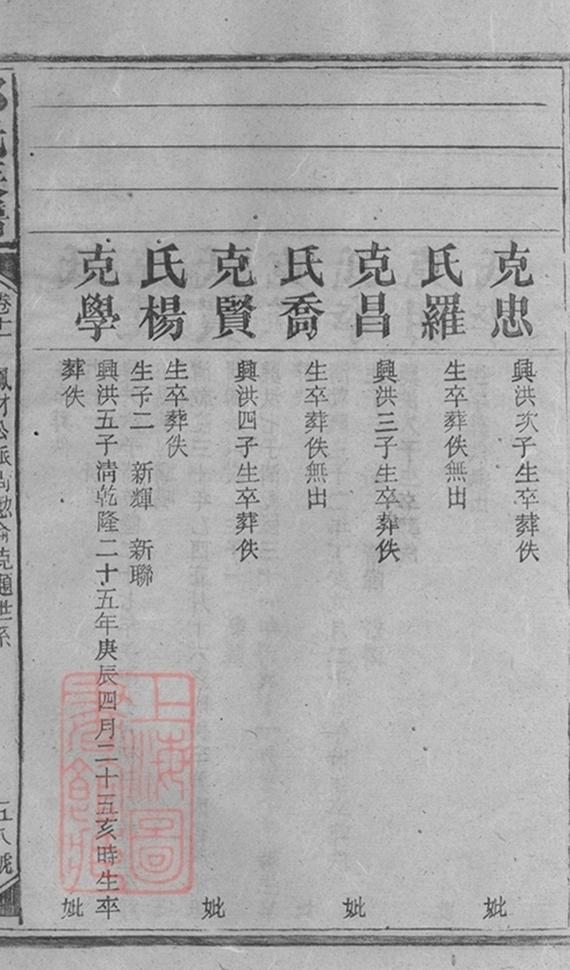 克忠
興洪次子生卒葬佚
妣
氏羅
生卒葬佚無出
克昌
興洪三子生卒葬佚
妣
氏喬
生卒葬佚無出
克賢
興洪四子生卒葬佚
妣
氏楊
生卒葬佚
生子二 新輝 新聯
克學
興洪五子清乾隆二十五年庚辰四月二十五亥時生卒
葬佚
妣
卷十一
五八號
上海圖
書館藏